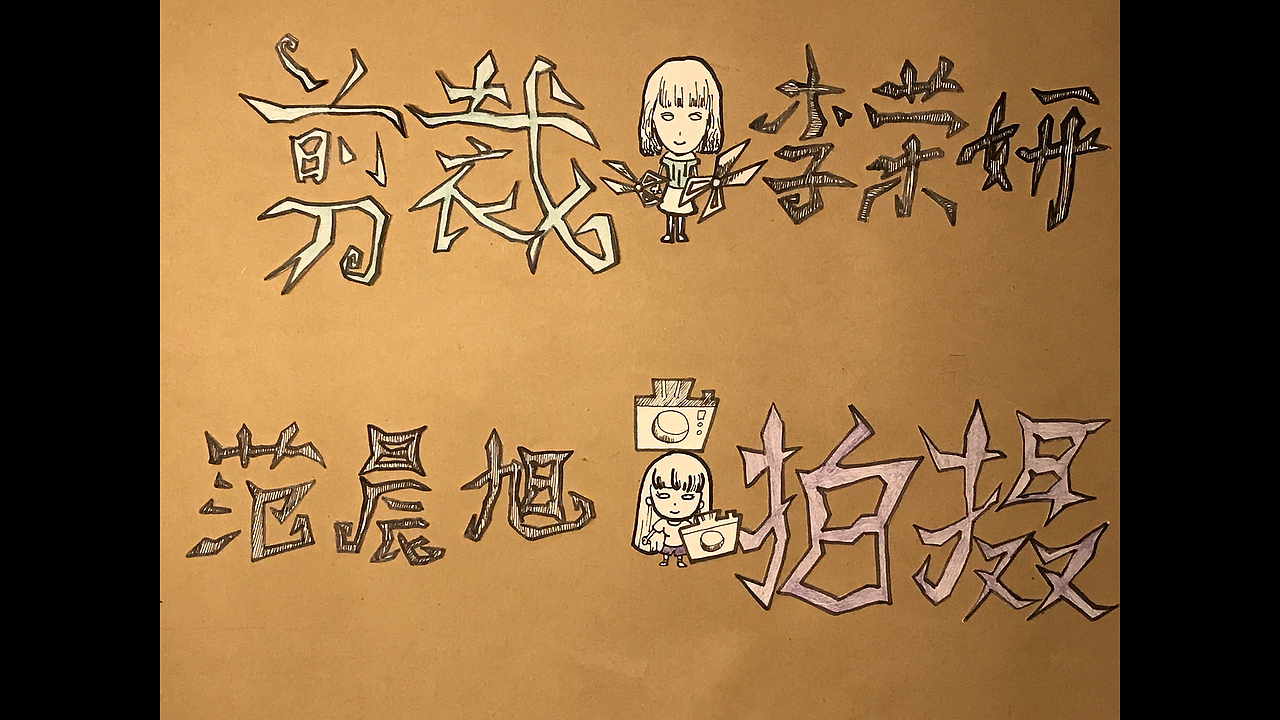 剪裁 李荣妍
范晨旭 拍摄